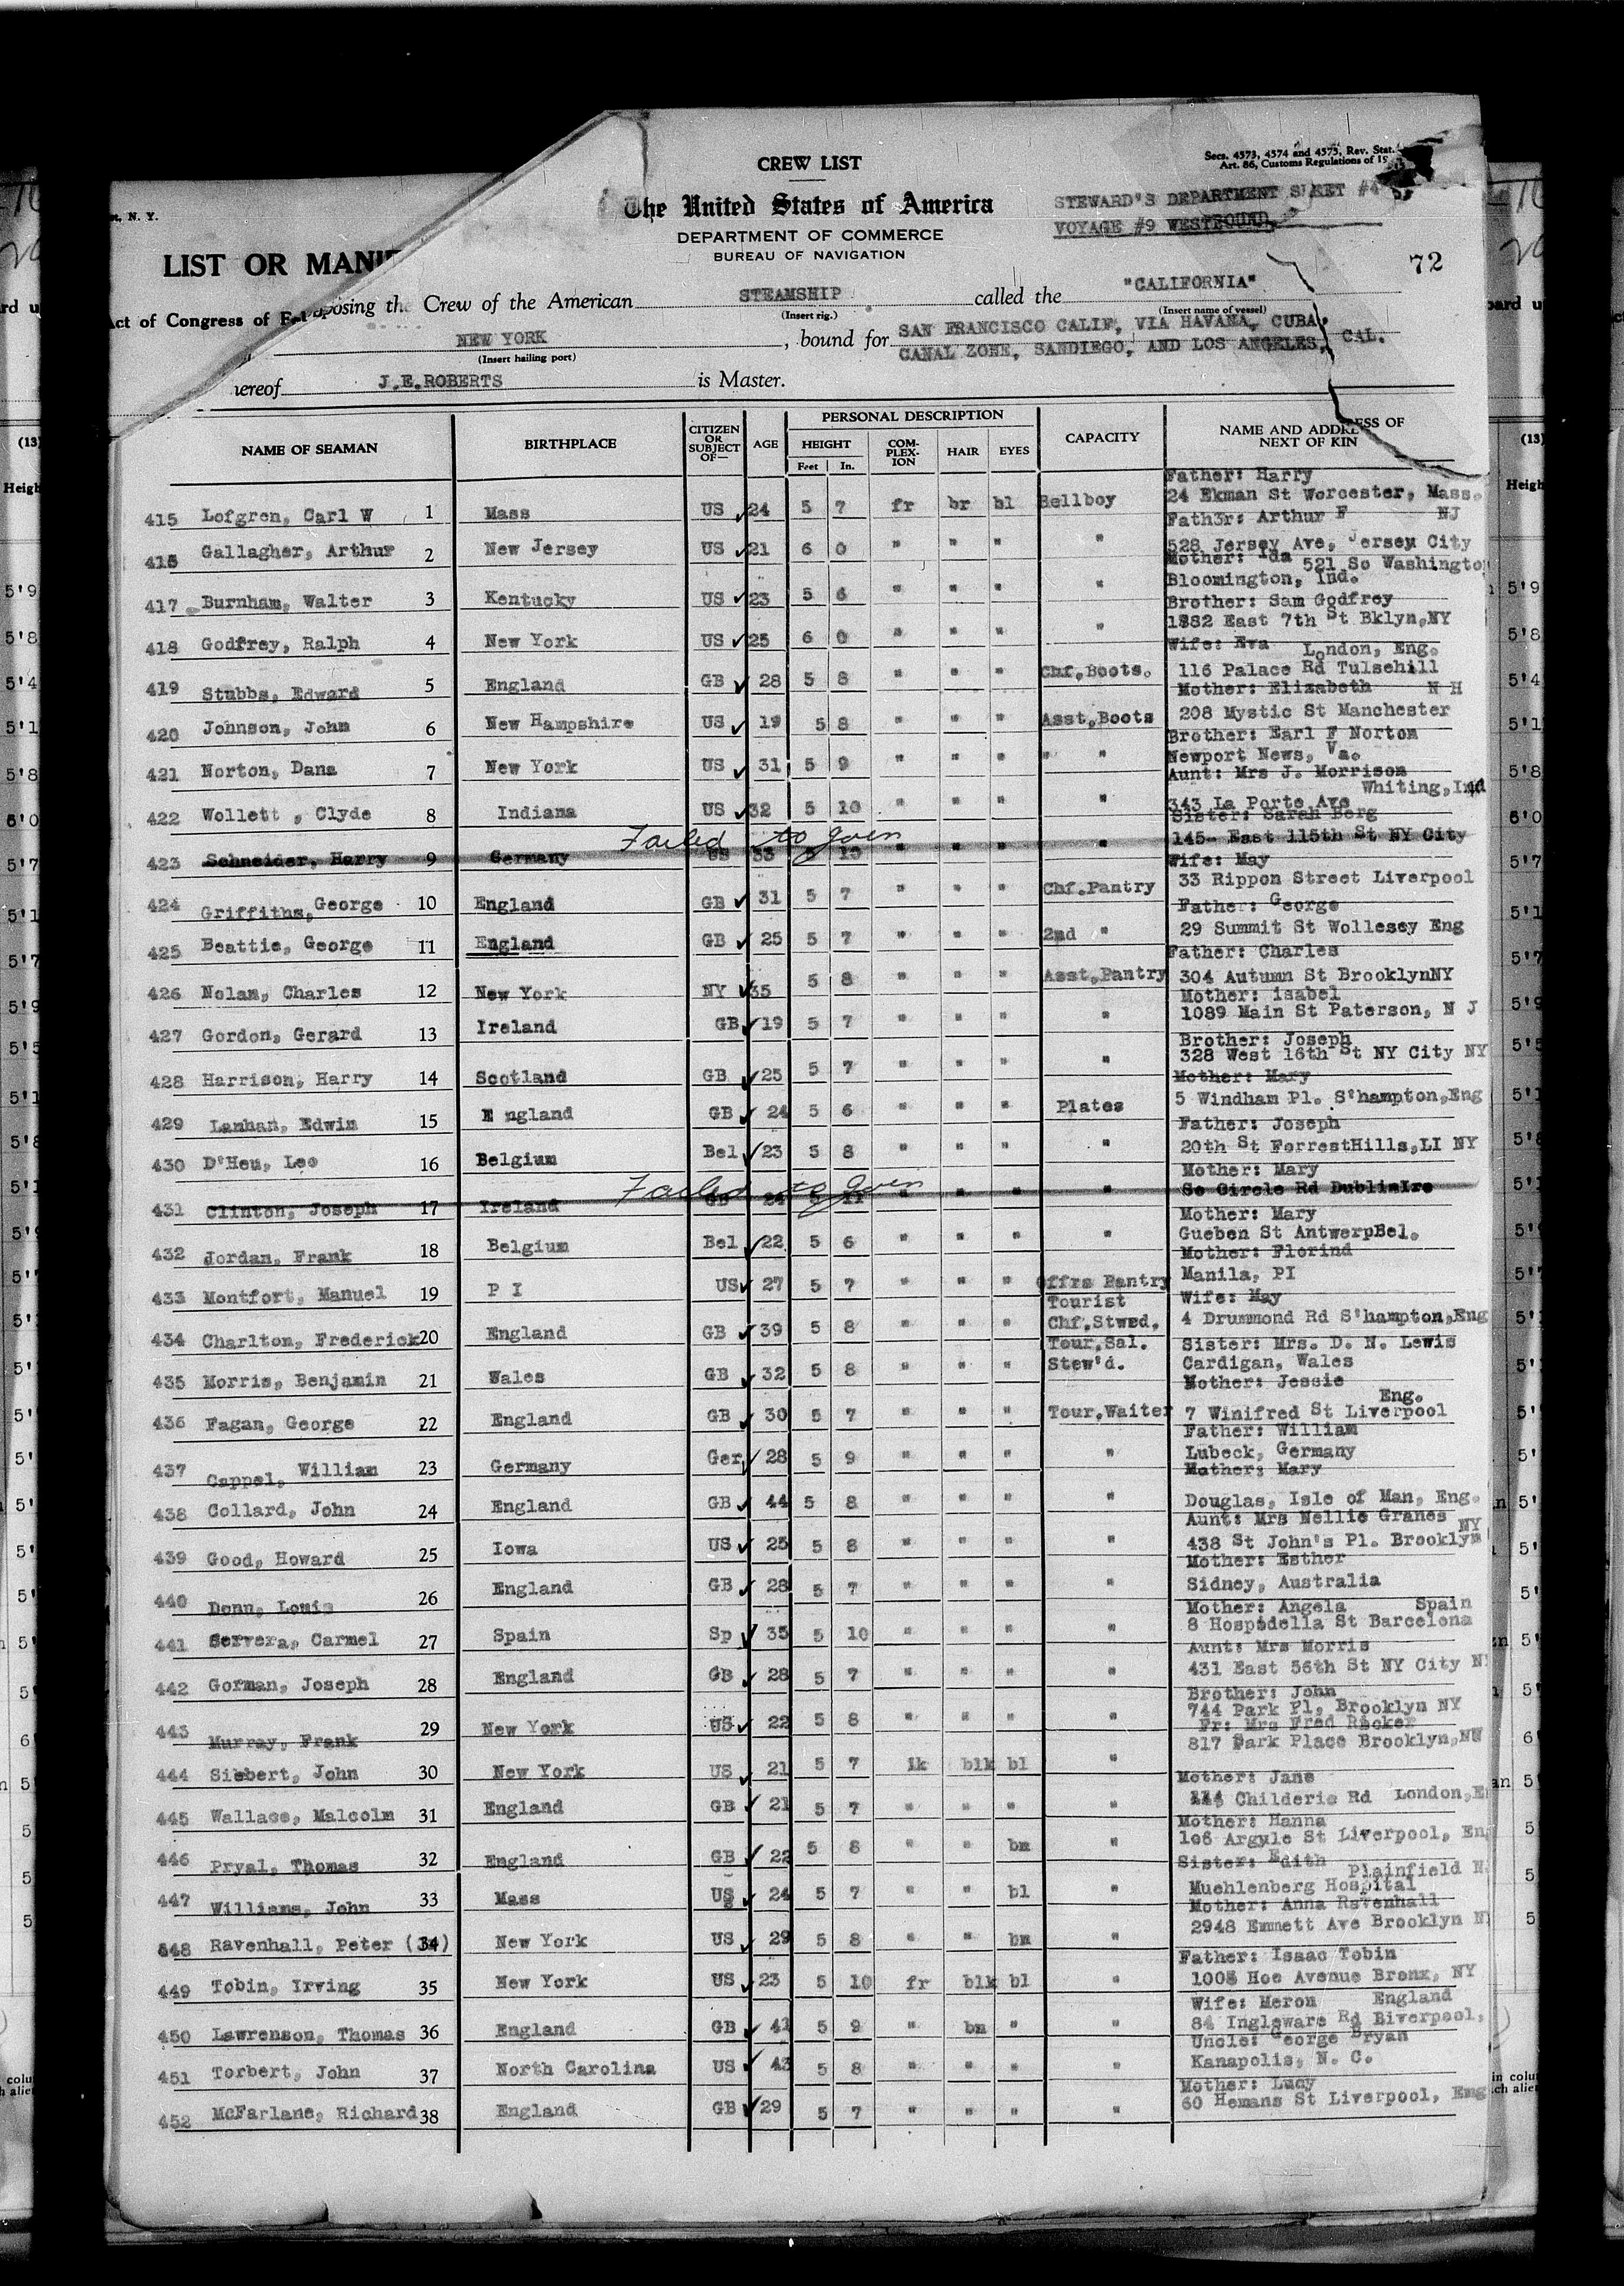 CREW LIST
Secs. 4573, 4574 and 4575, Rev. Stat.
Art. 86, Customs Regulations of 19
The United States of America
STEWARD'S DEPARTMENT SHEET #4
VOYAGE #9 WESTBOUND.
DEPARTMENT OF COMMERCE
BUREAU OF NAVIGATION
72
N. Y.
LIST OR MANIF
Act of Congress of
posing the Crew of the American STEAMSHIP called the "CALIFORNIA"
(Insert rig.) (Insert name of vessel)
NEW YORK , bound for SAN FRANCISCO CALIF, VIA HAVANA, CUBA,
(Insert hailing port) CANAL ZONE, SANDIEGO, AND LOS ANGELES, CAL.
ereof J.E.ROBERTS is Master.
NAME OF SEAMAN BIRTHPLACE CITIZEN OR SUBJECT OF— AGE PERSONAL DESCRIPTION CAPACITY NAME AND ADDRESS OF NEXT OF KIN
HEIGHT COM-PLEX-ION HAIR EYES
Feet In.
Father: Harry
415 Lofgren, Carl W 1 Mass US ✓ 24 5 7 fr br bl Bellboy 24 Ekman St Worcester, Mass.
Fath3r: Arthur F NJ
416 Gallagher, Arthur 2 New Jersey US ✓ 21 6 0 " " " " 528 Jersey Ave, Jersey City
Mother: Ida 521 So Washington
417 Burnham, Walter 3 Kentucky US ✓ 23 5 6 " " " " Bloomington, Ind.
Brother: Sam Godfrey
418 Godfrey, Ralph 4 New York US ✓ 25 6 0 " " " " 1882 East 7th St Bklyn,NY
Wife: Eva London, Eng.
419 Stubbs, Edward 5 England GB ✓ 28 5 8 " " " Chf.Boots. 116 Palace Rd Tulsehill
Mother: Elizabeth N H
420 Johnson, John 6 New Hampshire US ✓ 19 5 8 " " " Asst.Boots 208 Mystic St Manchester
Brother: Earl F Norton
421 Norton, Dana 7 New York US ✓ 31 5 9 " " " " " Newport News, Va.
Aunt: Mrs J. Morrison
Whiting,Ind
422 Wollett , Clyde 8 Indiana US ✓ 32 5 10 " " " " 343 La Porte Ave
Sister: Sarah Berg
Failed to join
423 Schneider, Harry 9 Germany US 33 5 10 " " " " 145- East 115th St NY City
Wife: May
424 Griffiths,George 10 England GB ✓ 31 5 7 " " " Chf.Pantry 33 Rippon Street Liverpool
Father: George
425 Beattie, George 11 England GB ✓ 25 5 7 " " " 2nd " 29 Summit St Wollesey Eng
Father: Charles
426 Nolan, Charles 12 New York NY ✓ 35 5 8 " " " Asst.Pantry 304 Autumn St BrooklynNY
Mother: isabel
427 Gordon, Gerard 13 Ireland GB ✓ 19 5 7 " " " " 1089 Main St Paterson, N J
Brother: Joseph
428 Harrison, Harry 14 Scotland GB ✓ 25 5 7 " " " " 328 West 16th St NY City NY
Mother: Mary
429 Lanhan, Edwin 15 E ngland GB ✓ 24 5 6 " " " Plates 5 Windham Pl. S'hampton,Eng
Father: Joseph
430 D'Heu, Leo 16 Belgium Bel ✓ 23 5 8 " " " " 20th St ForrestHills,LI NY
Mother: Mary
Failed to join
431 Clinton, Joseph 17 Ireland GB 24 5 11 " " " " So Circle Rd DublinIre
Mother: Mary
432 Jordan, Frank 18 Belgium Bel ✓ 22 5 6 " " " " Gueben St AntwerpBel.
Mother: Florind
433 Montfort, Manuel 19 P I US ✓ 27 5 7 " " " Offrs Pantry Manila, PI
Tourist Wife: May
434 Charlton, Frederick 20 England GB ✓ 39 5 8 " " " Chf.Stwed. 4 Drummond Rd S'hampton,Eng
Tour.Sal. Sister: Mrs. D. N. Lewis
435 Morris, Benjamin 21 Wales GB ✓ 32 5 8 " " " Stew'd. Cardigan, Wales
Mother: Jessie
Eng.
436 Fagan, George 22 England GB ✓ 30 5 7 " " " Tour.Waiter 7 Winifred St Liverpool
Father: William
437 Cappel, William 23 Germany Ger ✓ 28 5 9 " " " " Lubeck, Germany
Mother: Mary
438 Collard, John 24 England GB ✓ 44 5 8 " " " " Douglas, Isle of Man, Eng.
Aunt: Mrs Nellie Granes NY
439 Good, Howard 25 Iowa US ✓ 25 5 8 " " " " 438 St John's Pl. Brooklyn
Mother: Esther
440 Denn, Louis 26 England GB ✓ 28 5 7 " " " " Sidney, Australia
Mother: Angela Spain
441 Servera, Carmel 27 Spain Sp ✓ 35 5 10 " " " " 8 Hospedella St Barcelona
Aunt: Mrs Morris
442 Gorman, Joseph 28 England GB ✓ 28 5 7 " " " " 431 East 56th St NY City N
Brother: John
443 Murray, Frank 29 New York US ✓ 22 5 8 " " " " 744 Park Pl, Brooklyn NY
Fr: Mrs Fred Racker
817 Park Place Brooklyn,NW
444 Siebert, John 30 New York US ✓ 21 5 7 ik blk bl "
Mother: Jane
445 Wallace, Malcolm 31 England GB ✓ 21 5 7 " " " " Childeric Rd London,E
Mother: Hanna
446 Pryal, Thomas 32 England GB ✓ 22 5 8 " " bn " 106 Argyle St Liverpool, Eng
Sister: Edith Plainfield N.
447 Williams, John 33 Mass US ✓ 24 5 7 " " bl " Muehlenberg Hospital
Mother: Anna Ravenhall
448 Ravenhall, Peter (34) New York US ✓ 29 5 8 " " bn " 2948 Emmett Ave Brooklyn N
Father: Isaac Tobin
449 Tobin, Irving 35 New York US ✓ 23 5 10 fr blk bl " 1008 Hoe Avenue Bronx, NY
Wife: Meron England
450 Lawrenson, Thomas 36 England GB ✓ 41 5 9 " bn " " 84 Ingleware Rd Liverpool,
Uncle: George Bryan
451 Torbert, John 37 North Carolina US ✓ 43 5 8 " " " " Kanapolis, N. C.
Mother: Lucy
452 McFarlane, Richard 38 England GB ✓ 29 5 7 " " " " 60 Hemans St Liverpool, Eng